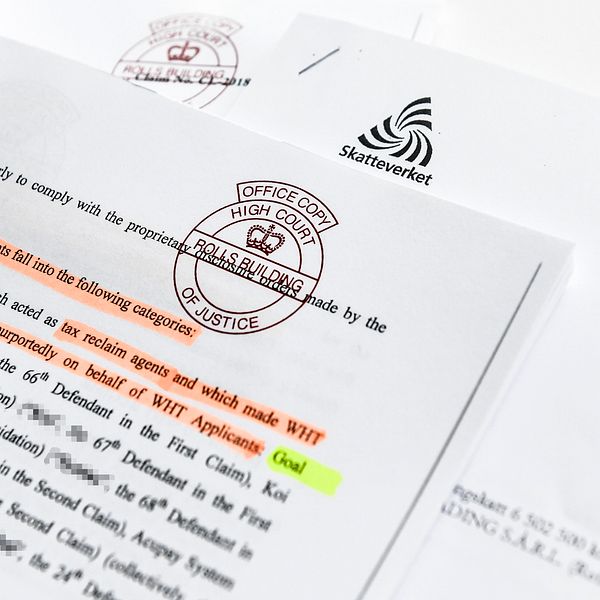 OFFICE COPY
HIGH COURT
ROLLS BUILDING
Claim No. CL-2018
Skatteverket
OFFICE COPY
HIGH COURT
ROLLS BUILDING
OF JUSTICE
to comply with the proprietary disclosure orders made by the
fall into the following categories:
acted as tax reclaim agents and which made WHT
purportedly on behalf of WHT Applicants: Goal
the 66th Defendant in the First Claim), Koi
67th Defendant in the First
the 68th Defendant in
in the Second Claim), Acupay System
Second Claim) (collectively,
the 24th
6 502 500
ADING S.À.R.L.